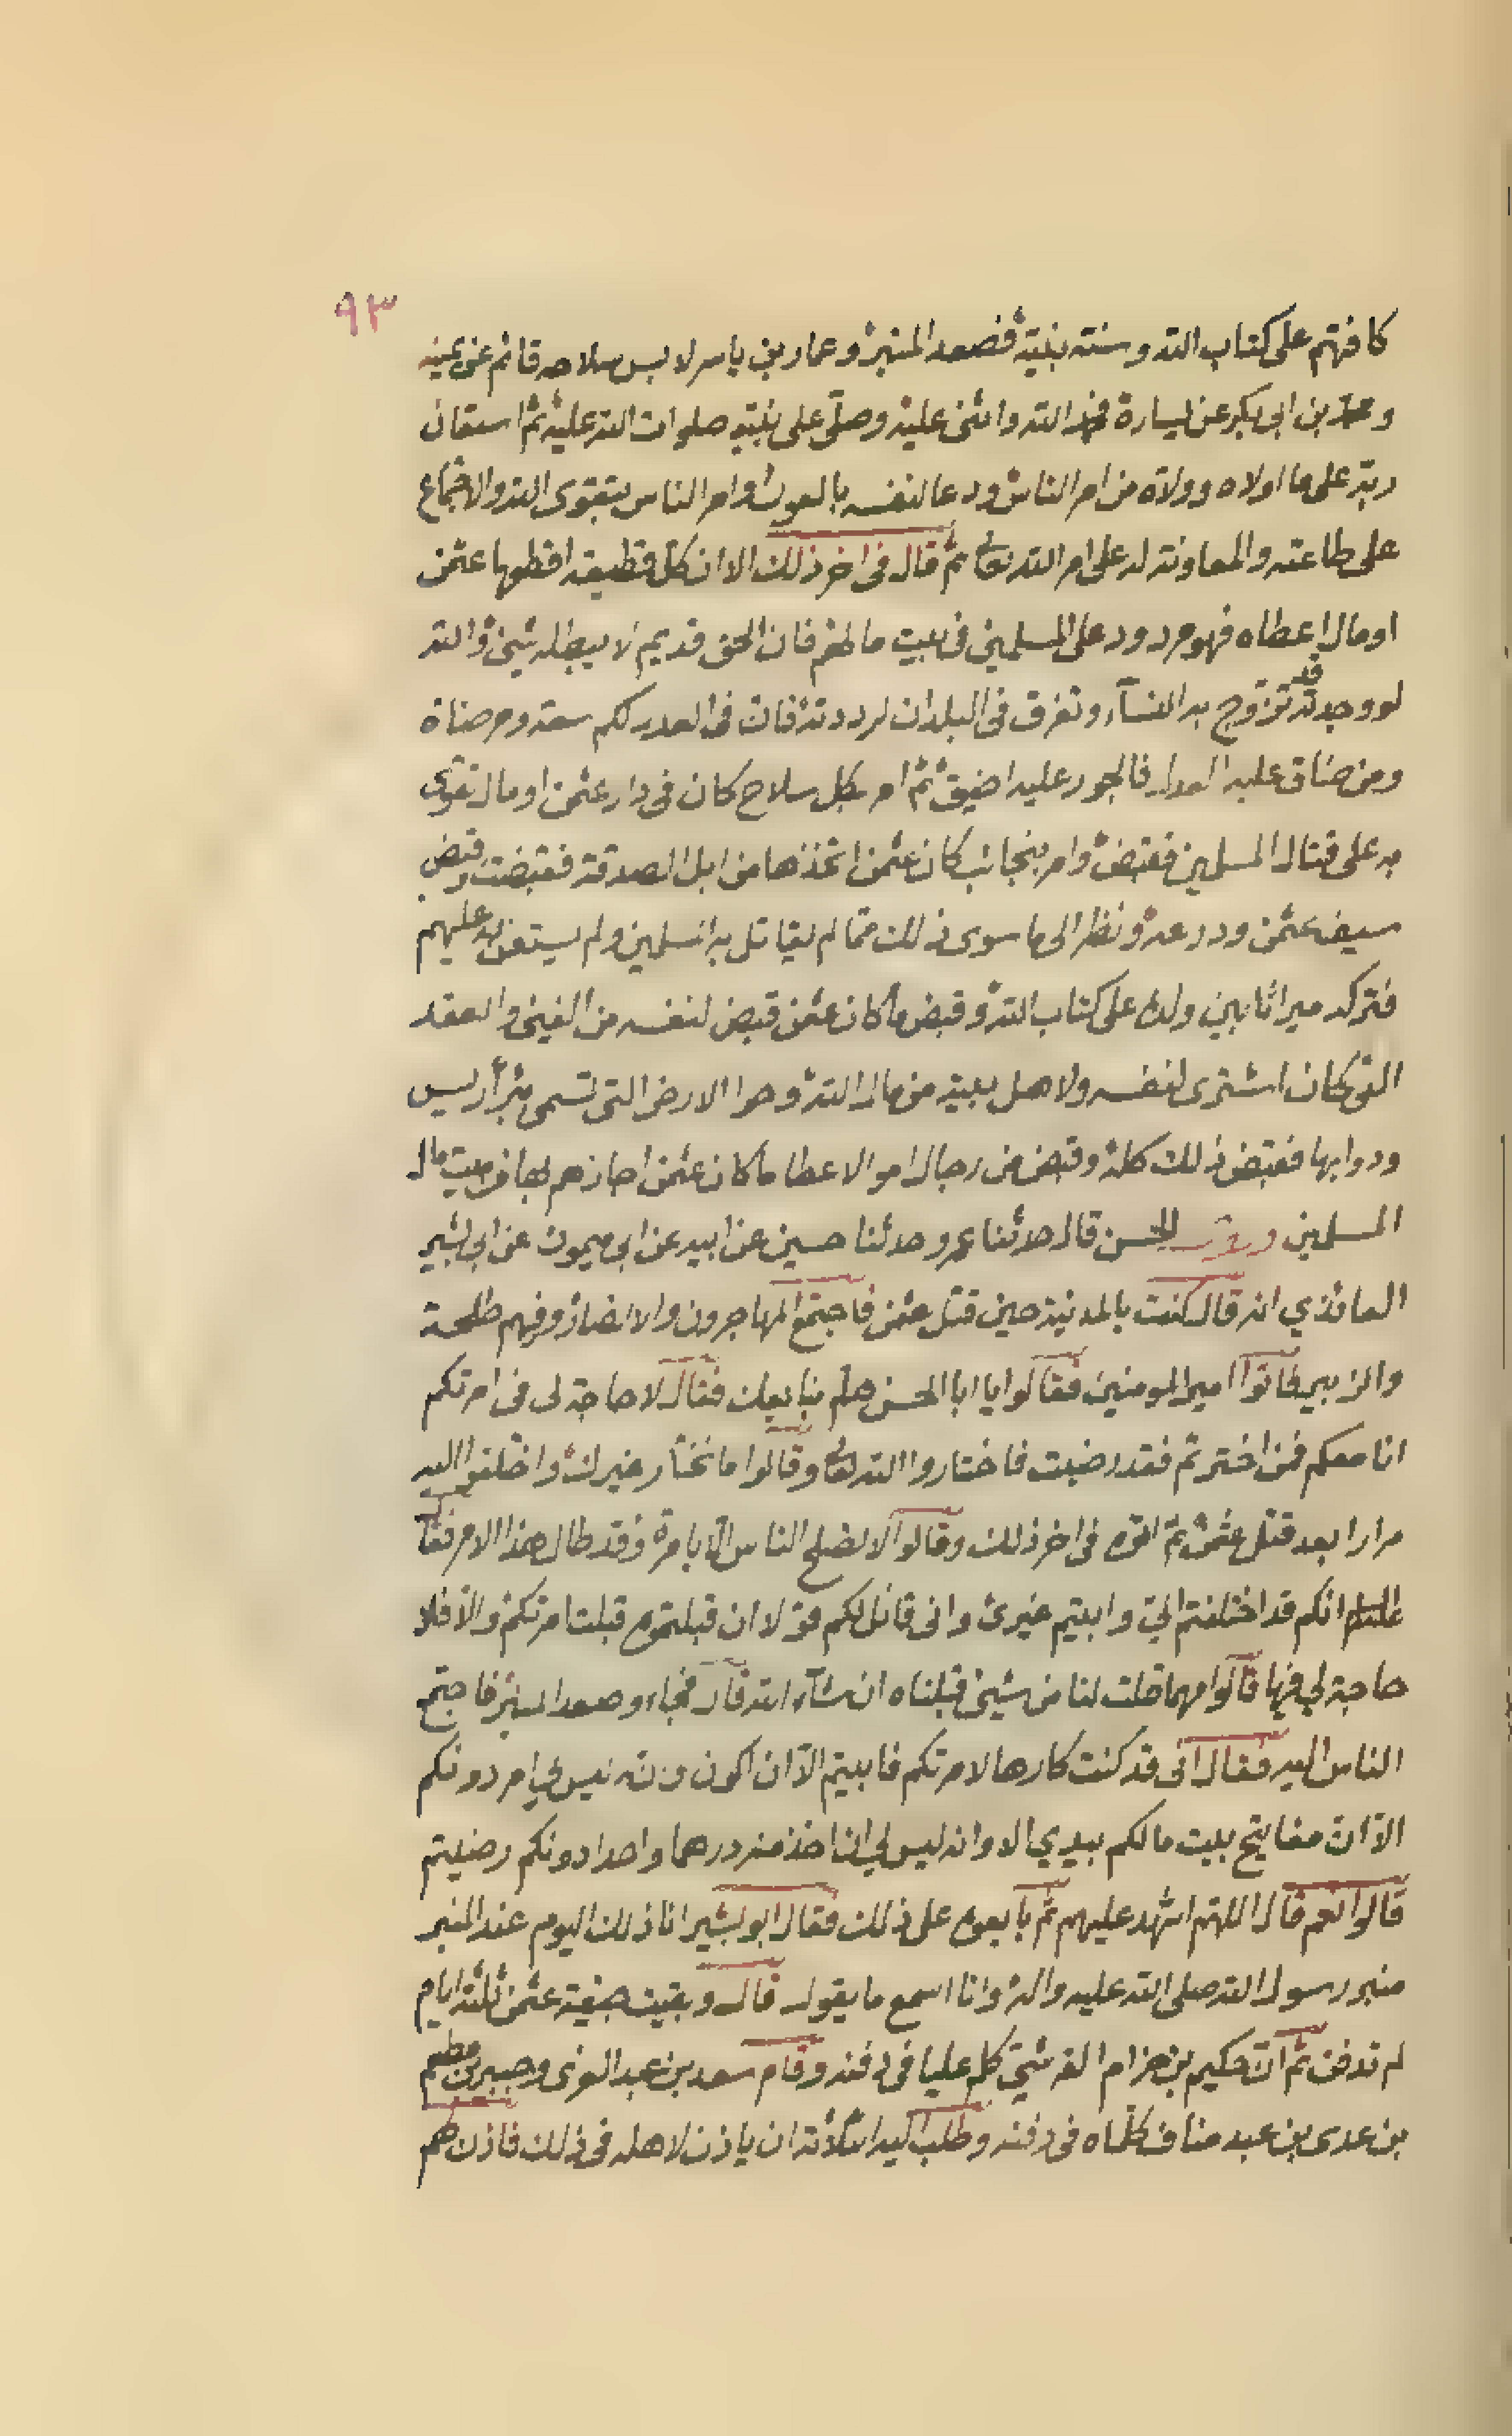 ٩٣
كافتهم على كتاب الله وسنته بنيته فصعد المنبر وعمار بن ياسر لابس سلاحه قائم عن يمينه
ومحمد بن ابى بكر عن يساره فحمد الله واثنى عليه وصلّى على نبيّه صلوات الله عليه ثم استعان
ربّه على ما اولاه وولاه من امر الناس ودعا لنفسه بالعون وامر الناس بتقوى الله والاجتماع
على طاعته والمعاونة له على امر الله تعالى ثم قال فى اخر ذلك الا ان كل قطيعة اقطعها عثمن
او مال اعطاه فهو مردود على المسلمين فى بيت مالهم فان الحق قديم لا يبطله شيئ والله
لو وجدته قد تزوّج به النسآء وتفرق فى البلدان لرددته فان فى العدل لكم سعة ومرضاة
ومن ضاق عليه العدل فالجور عليه اضيق ثم امر بكل سلاح كان فى دار عثمن او مال تقوى
به على قتال المسلمين فقبض وامر بنجائب كان عثمن اتخذها من ابل الصدقة فقبضت وقبض
سيف عثمن ودرعه ونظر الى ما سوى ذلك مما لم يقاتل به المسلمين ولم يستعن به عليهم
فتركه ميراثا بين ولده على كتاب الله وقبض ما كان عثمن قبض لنفسه من الفيئ والعقد
التى كان اشترى لنفسه ولاهل بيته من مال الله وهو الارض التى تسمى بئر أريس
ودوابها فقبض ذلك كله وقبض من رجال اموالا عطا ما كان عثمن اجازهم بها من بيت مال
المسلمين الحسن قال حدثنا عمرو حدثنا حسين عن ابيه عن ابى ميمون عن ابى بشير
العائذي انه قال كنت بالمدينة حين قتل عثمن فاجتمع المهاجرون والانصار وفيهم طلحة
والزبير فاتوا امير المومنين فقالوا يا ابا الحسن هلم نبايعك فقال لا حاجة لى فى امرتكم
انا معكم فمن اخترتم فقد رضيت فاختاروا الله تعالى وقالوا ما نختار غيرك واختلفوا اليه
مرارا بعد قتل عثمن ثم اتوه فى اخر ذلك وقالوا لا يصلح الناس الّا بامرة وقد طال هذا الامر فقال
انكم قد اختلفتم اليّ وابيتم غيرى وانى قائل لكم قولا ان قبلتموه قبلت امرتكم والّا فلا
حاجة لي فيها قالوا مهما قلت لنا من شيئ قبلناه ان شآء الله قال فجاء وصعد المنبر فاجتمع
الناس اليه فقال انى قد كنت كارها لامرتكم فابيتم الّا ان اكون وانه ليس لي امر دونكم
الّا ان مفاتيح بيت مالكم بيدي الا وانه ليس لي ان اخذ منه درهما واحدا دونكم رضيتم
قالوا نعم قال اللهّم اشهد عليهم ثم بايعوه على ذلك فقال ابو بشير انا ذلك اليوم عند المنبر
منبر رسول الله صلى الله عليه واله وانا اسمع ما يقول قال وبقيت جيفة عثمن ثلثة ايام
لم تدفن ثم ان حكيم بن حزام القرشيّ كلم عليا فى دفنه وقام سعد بن عبد العزى وجبير بن مطعم
بن عدى بن عبد مناف كلّماه فى دفنه وطلب اليه الثلاثة ان ياذن لاهله فى ذلك فاذن لهم